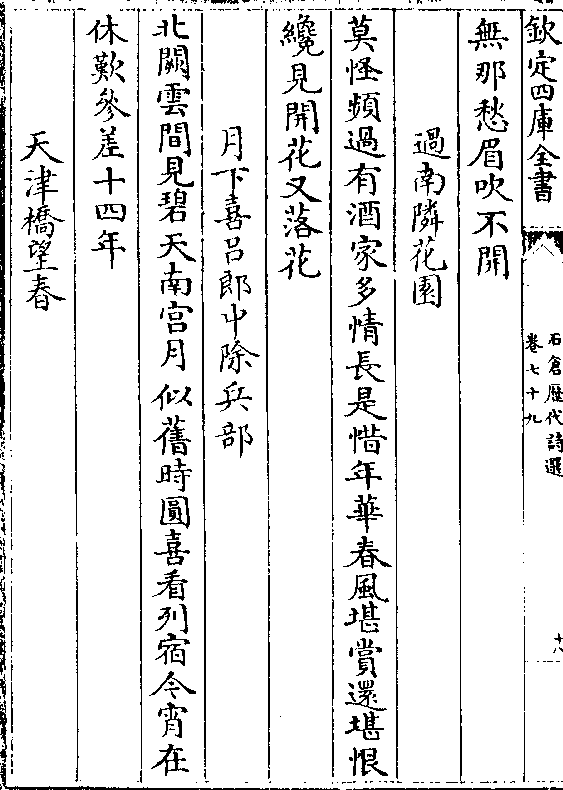 欽定四庫全書
石倉歷代詩選
卷七十九
十八
無那愁眉吹不開
過南隣花園
莫怪頻過有酒家多情長是惜年華春風堪賞還堪恨
纔見開花又落花
月下喜吕郎中除兵部
北闕雲間見碧天南宫月似舊時圓喜看列宿今宵在
休歎參差十四年
天津橋望春